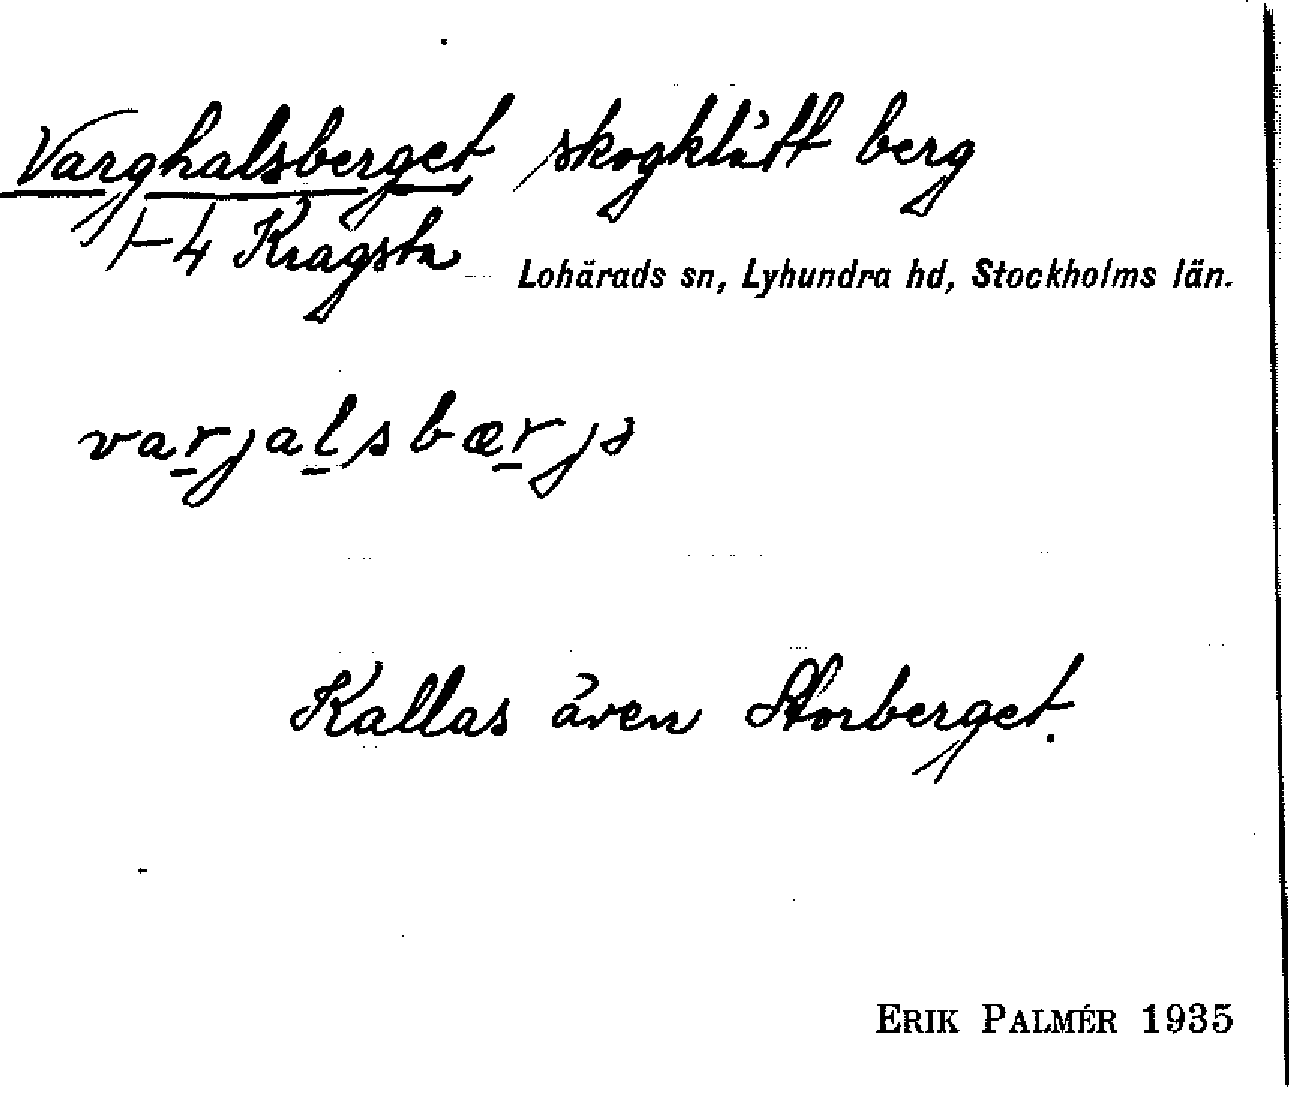 Varghalsberget skogklätt berg
1-4 Kragsta
Lohärads sn, Lyhundra hd, Stockholms län.
va̲rjal̲sbær̲jə
Kallas även Storberget.
ERIK PALMÉR 1935